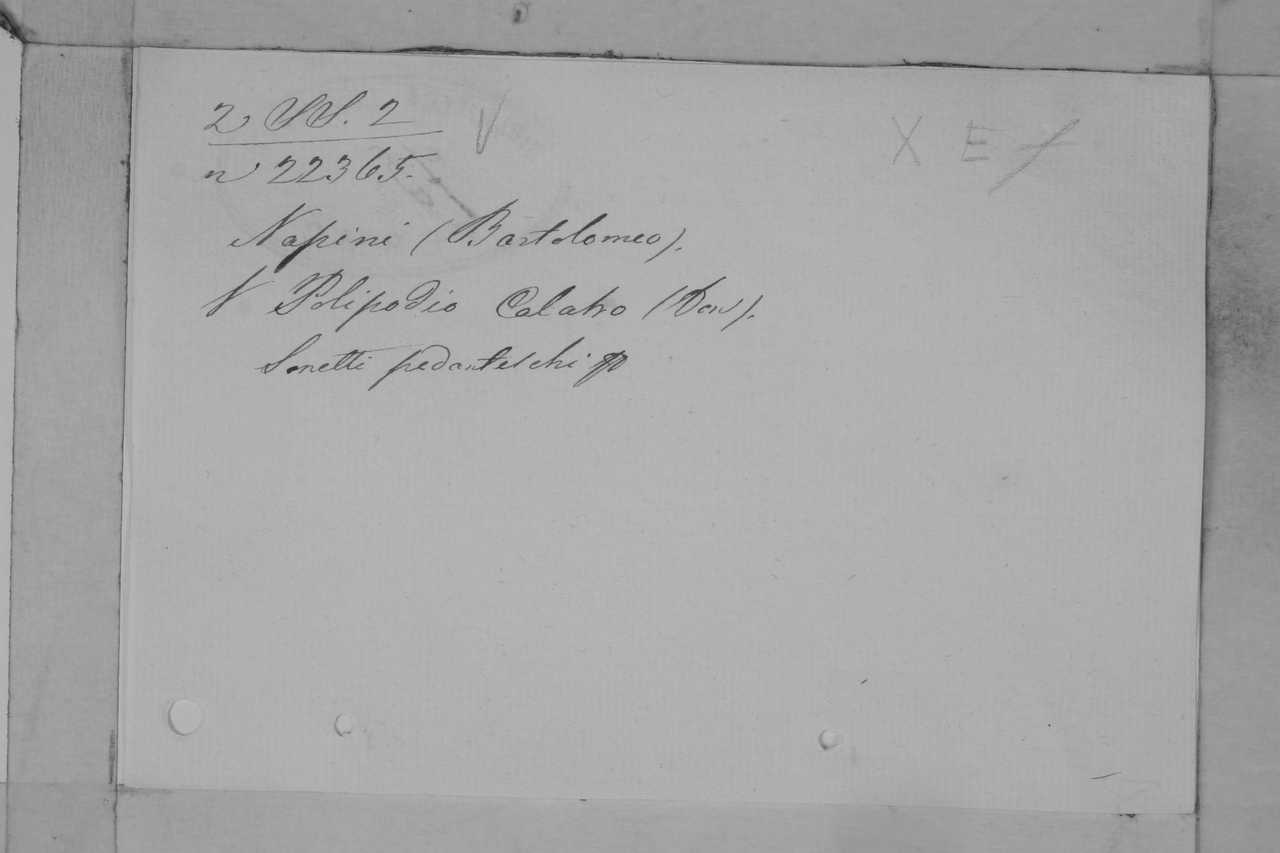 2 SS. 2 V X E f
n 22365.
Napini (Bartolomeo).
V Polipodio Calabro (Don).
Sonetti pedanteschi